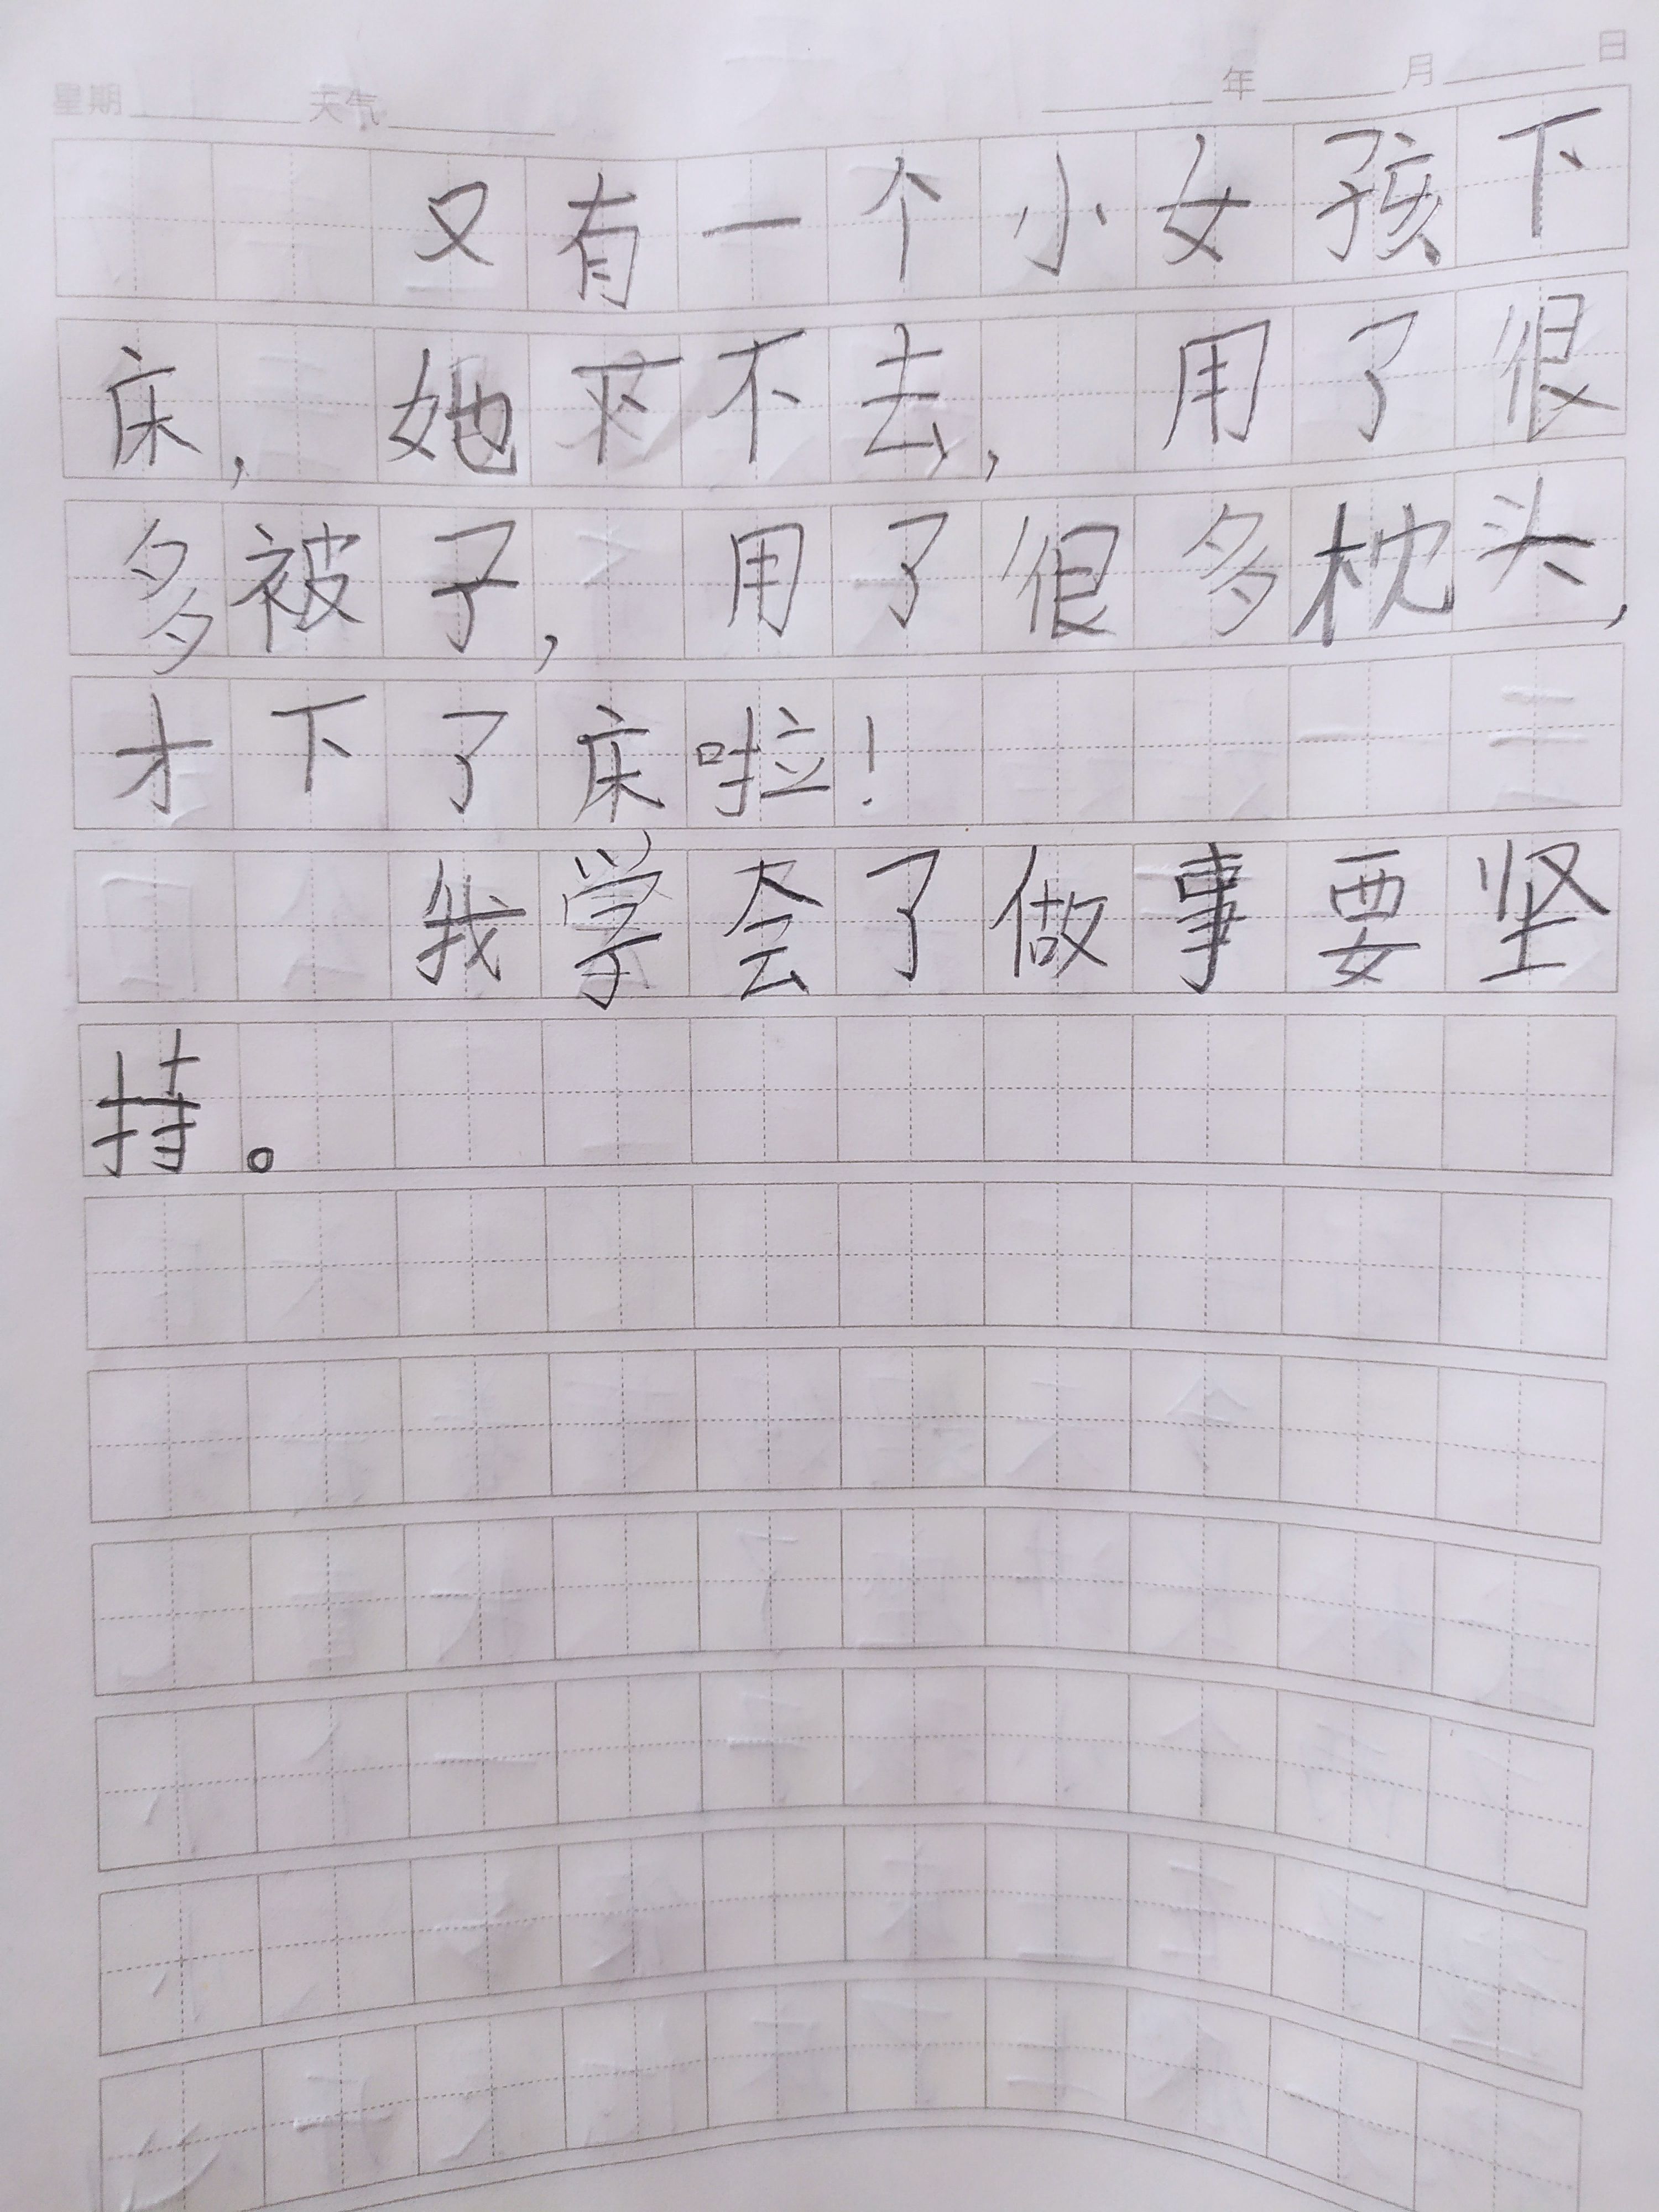 星期 天气 年 月 日
又有一个小女孩下
床，她下不去，用了很
多被子，用了很多枕头，
才下了床啦！
我学会了做事要坚
持。